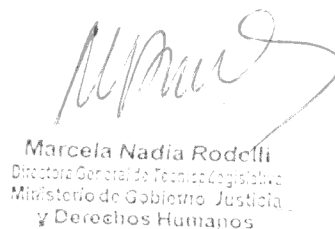 Marcela Nadia Rodelli
Directora General de Técnica Legislativa
Ministerio de Gobierno Justicia
y Derechos Humanos